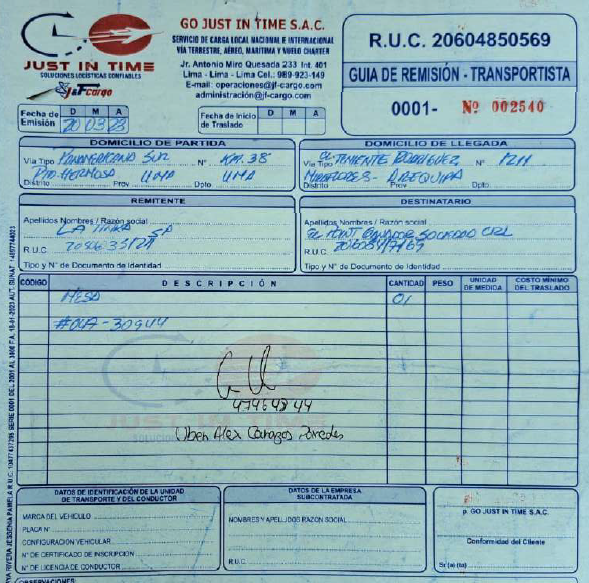 JUST IN TIME
SOLUCIONES LOGÍSTICAS CONFIABLES
J&Fcargo
GO JUST IN TIME S.A.C.
SERVICIO DE CARGA LOCAL NACIONAL E INTERNACIONAL
VÍA TERRESTRE, AÉREO, MARÍTIMA Y VUELO CHARTER
Jr. Antonio Miro Quesada 233 Int. 401
Lima - Lima - Lima Cel.: 989-923-149
E-mail: operaciones@jf-cargo.com
administración@jf-cargo.com
R.U.C. 20604850569
GUIA DE REMISIÓN - TRANSPORTISTA
0001- Nº 002540
Fecha de Emisión D M A
20 03 23
Fecha de Inicio de Traslado D M A
DOMICILIO DE PARTIDA
Vía Tipo PANAMERICANA SUR N° KM. 38
PTO. HERMOSA LIMA LIMA
Distrito Prov Dpto
DOMICILIO DE LLEGADA
Vía Tipo EL TENIENTE RODRIGUEZ N°
MIRAFLORES - AREQUIPA
Distrito Prov Dpto
REMITENTE
Apellidos Nombres / Razón social
SA
R.U.C.
Tipo y N° de Documento de Identidad
DESTINATARIO
Apellidos Nombres / Razón social
R.U.C.
Tipo y N° de Documento de Identidad
CÓDIGO DESCRIPCIÓN CANTIDAD PESO UNIDAD DE MEDICA COSTO MÍNIMO DEL TRASLADO
MESA 01
47464844
Uber Alex
JUST IN TIME
DATOS DE IDENTIFICACIÓN DE LA UNIDAD DE TRANSPORTE Y DEL CONDUCTOR
MARCA DEL VEHICULO
PLACA N°
CONFIGURACIÓN VEHICULAR
N° DE CERTIFICADO DE INSCRIPCION
N° DE LICENCIA DE CONDUCTOR
DATOS DE LA EMPRESA SUBCONTRATADA
NOMBRES Y APELLIDOS RAZON SOCIAL
R.U.C.
p. GO JUST IN TIME S.A.C.
Conformidad del Cliente
Sr (a) (ta)
OBSERVACIONES: